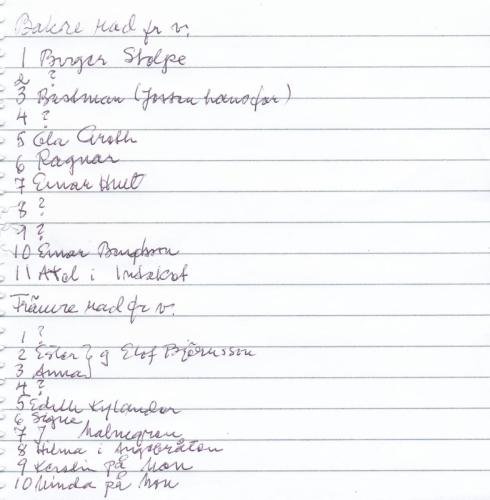 Bakre rad fr v.
1 Birger Stolpe
2 ?
3 Bastman (Jossa hansfar)
4 ?
5 Ola Groth
6 Ragnar
7 Einar Hult
8 ?
9 ?
10 Einar Bengtsson
11 Axel i
Främre rad fr v.
1 ?
2 Ester } g Elof Björnsson
3 Anna
4 ?
5 Edith Kylander
6 Signe
7 Malmgren
8 Hilma i
9 Kerstin på Mon
10 Minda på Mon